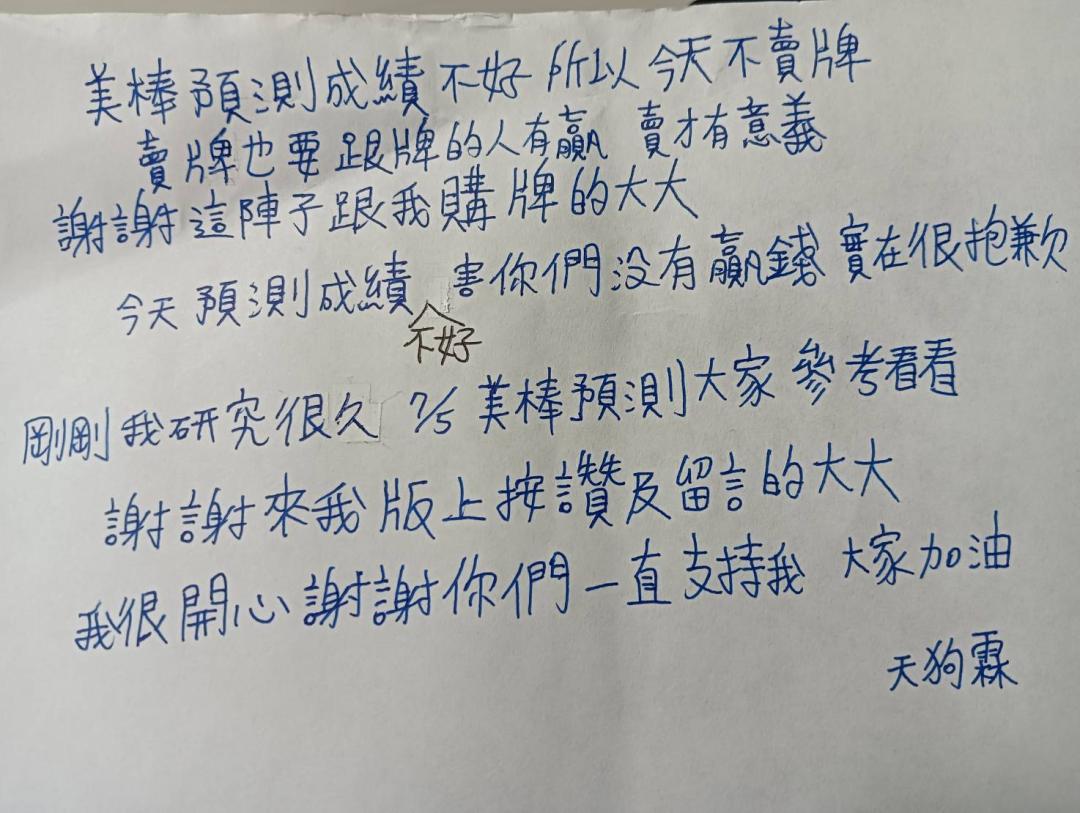 美棒預測成績不好 所以今天不賣牌
賣牌也要跟牌的人有贏 賣才有意義
謝謝這陣子跟我購牌的大大
今天預測成績不好害你們沒有贏錢 實在很抱歉
剛剛我研究很久 7/5 美棒預測大家參考看看
謝謝來我版上按讚及留言的大大
我很開心謝謝你們一直支持我 大家加油
天狗霖